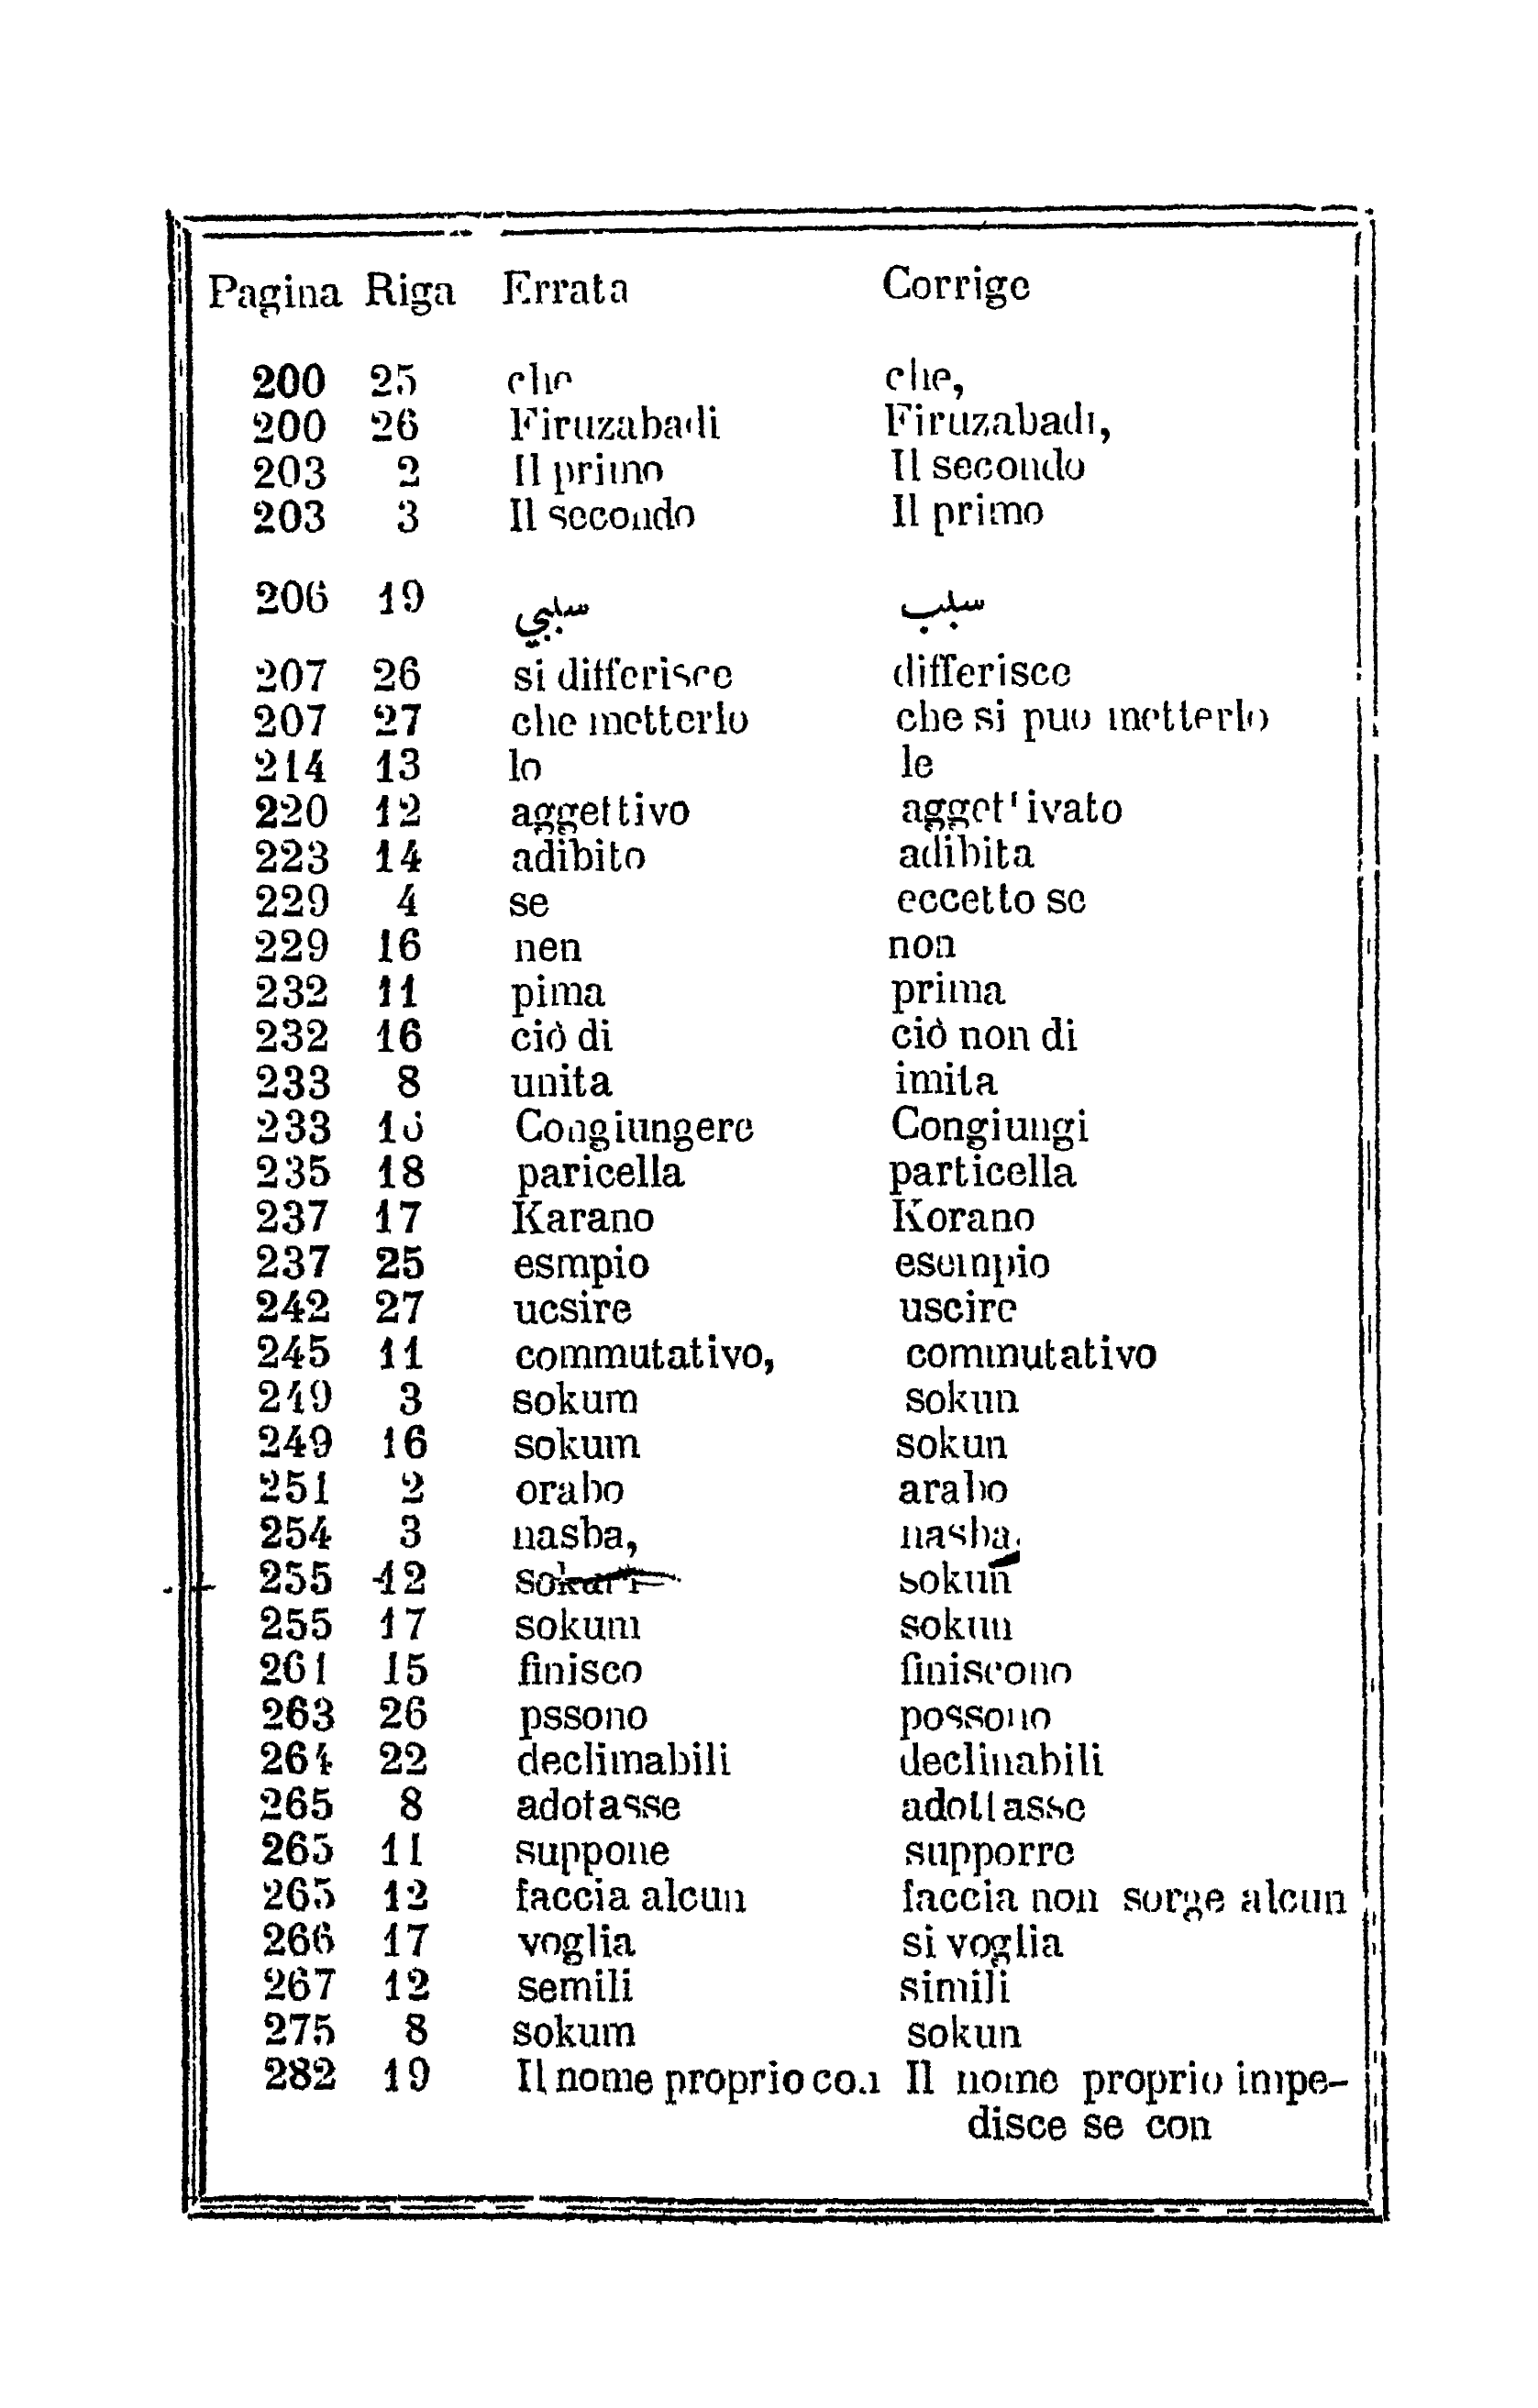 Pagina Riga Errata Corrige
200 25 che che,
200 26 Firuzabadi Firuzabadi,
203 2 Il primo Il secondo
203 3 Il secondo Il primo
206 19 سلبي سلب
207 26 si differisce differisce
207 27 che metterlo che si puo metterlo
214 13 lo le
220 12 aggettivo aggettivato
223 14 adibito adibita
229 4 se eccetto se
229 16 nen non
232 11 pima prima
232 16 ciò di ciò non di
233 8 unita imita
233 Congiungere Congiungi
235 18 paricella particella
237 17 Karano Korano
237 25 esmpio esempio
242 27 ucsire uscire
245 11 commutativo, commutativo
249 3 sokum sokun
249 16 sokum sokun
251 2 orabo arabo
254 3 nasba, nasba.
255 12 sokun
255 17 sokum sokun
261 15 finisco finiscono
263 26 pssono possono
264 22 declimabili declinabili
265 8 adotasse adottasse
265 11 suppone supporre
265 12 faccia alcun faccia non sorge alcun
266 17 voglia si voglia
267 12 semili simili
275 8 sokum sokun
282 19 Il nome proprio con Il nome proprio impe-
disce se con